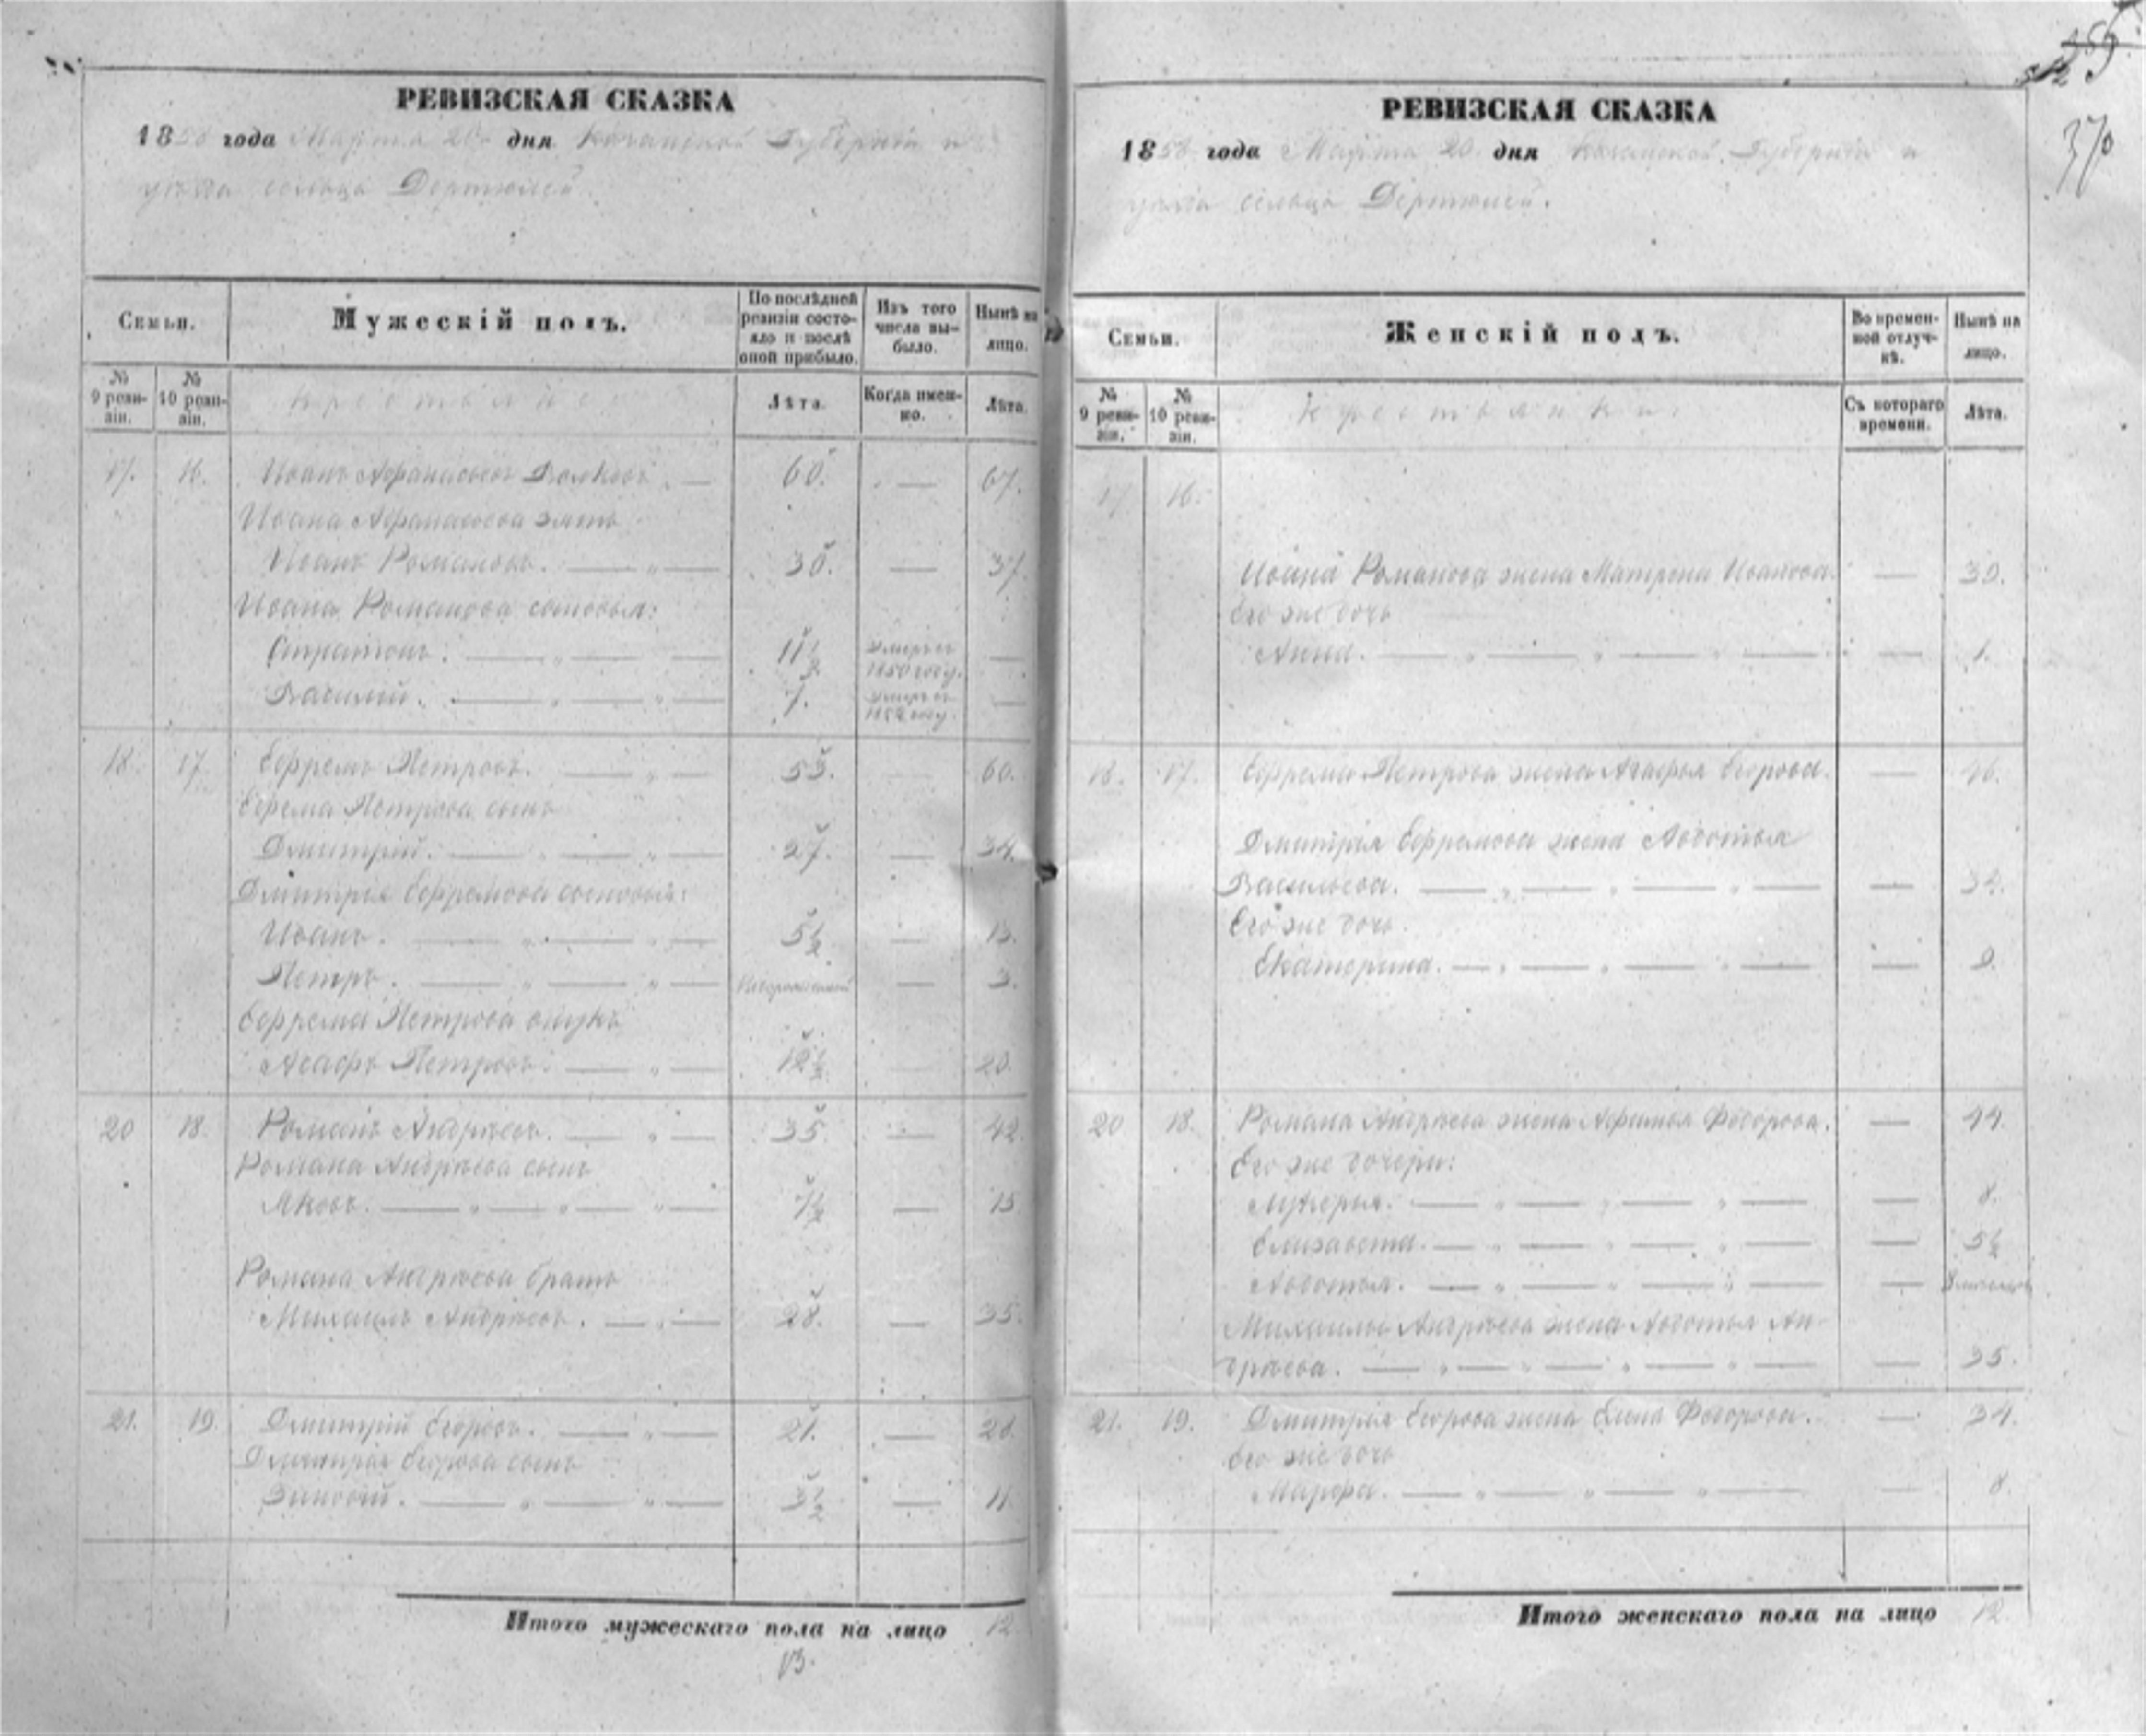 370
РЕВИЗСКАЯ СКАЗКА
1858 года Марта 20 дня Казанской Губерніи и
уѣзда сельца Дертюлей.
Семьи.
Мужескій полъ.
По послѣдней ревизіи состояло и послѣ оной прибыло.
Изъ того числа выбыло.
Нынѣ на лицо.
№ 9 ревизіи.
№ 10 ревизіи.
Крестьяне
Лѣта.
Когда именно.
Лѣта.
17. 16. Иванъ Афанасьевъ — 60. — 67.
Ивана Афанасьева зять
Иванъ Романовъ. — 30. — 37.
Ивана Романова сыновья:
Стратонъ. — 11½ умеръ въ 1850 году. —
Василій. — 7. умеръ въ —
18. 17. Ефремъ Петровъ. — 53. — 60.
Ефрема Петрова сынъ
Дмитрій. — 27. — 34.
Дмитрія Ефремова сыновья:
Иванъ. — 5½ — 13.
Петръ. — Новорожденный — 3.
Ефрема Петрова внукъ
Асафъ Петровъ. — 12½ — 20.
20 18. Романъ Андреевъ. — 35. — 42.
Романа Андреева сынъ
Яковъ. — 7½ — 15.
Романа Андреева братъ
Михаилъ Андреевъ. — 28. — 35.
21. 19. Дмитрій Егоровъ. — 21. — 28.
Дмитрія Егорова сынъ
Зиновій. — 3½ — 11.
Итого мужескаго пола на лицо 12
13.
РЕВИЗСКАЯ СКАЗКА
1858 года Марта 20 дня Казанской Губерніи и
уѣзда сельца Дертюлей.
Семьи.
Женскій полъ.
Во временной отлучкѣ.
Нынѣ на лицо.
№ 9 ревизіи.
№ 10 ревизіи.
Крестьянки.
Съ котораго времени.
Лѣта.
17 16.
Ивана Романова жена Матрена Иванова. — 39.
Его же дочь
Анна. — 1.
18. 17. Ефрема Петрова жена Агафья Егорова. — 46.
Дмитрія Ефремова жена Авдотья
Васильева. — 34.
Его же дочь
Екатерина. — 9.
20 18. Романа Андреева жена Афимья Федорова. — 44.
Его же дочери:
Лукерья. — 8.
Елизавета. — 5½
Авдотья. —
Михаилы Андреева жена Авдотья Ан-
дреева. — 35.
21. 19. Дмитрія Егорова жена Елена Федорова. — 34.
Его же дочь
Марфа. — 8.
Итого женскаго пола на лицо 12